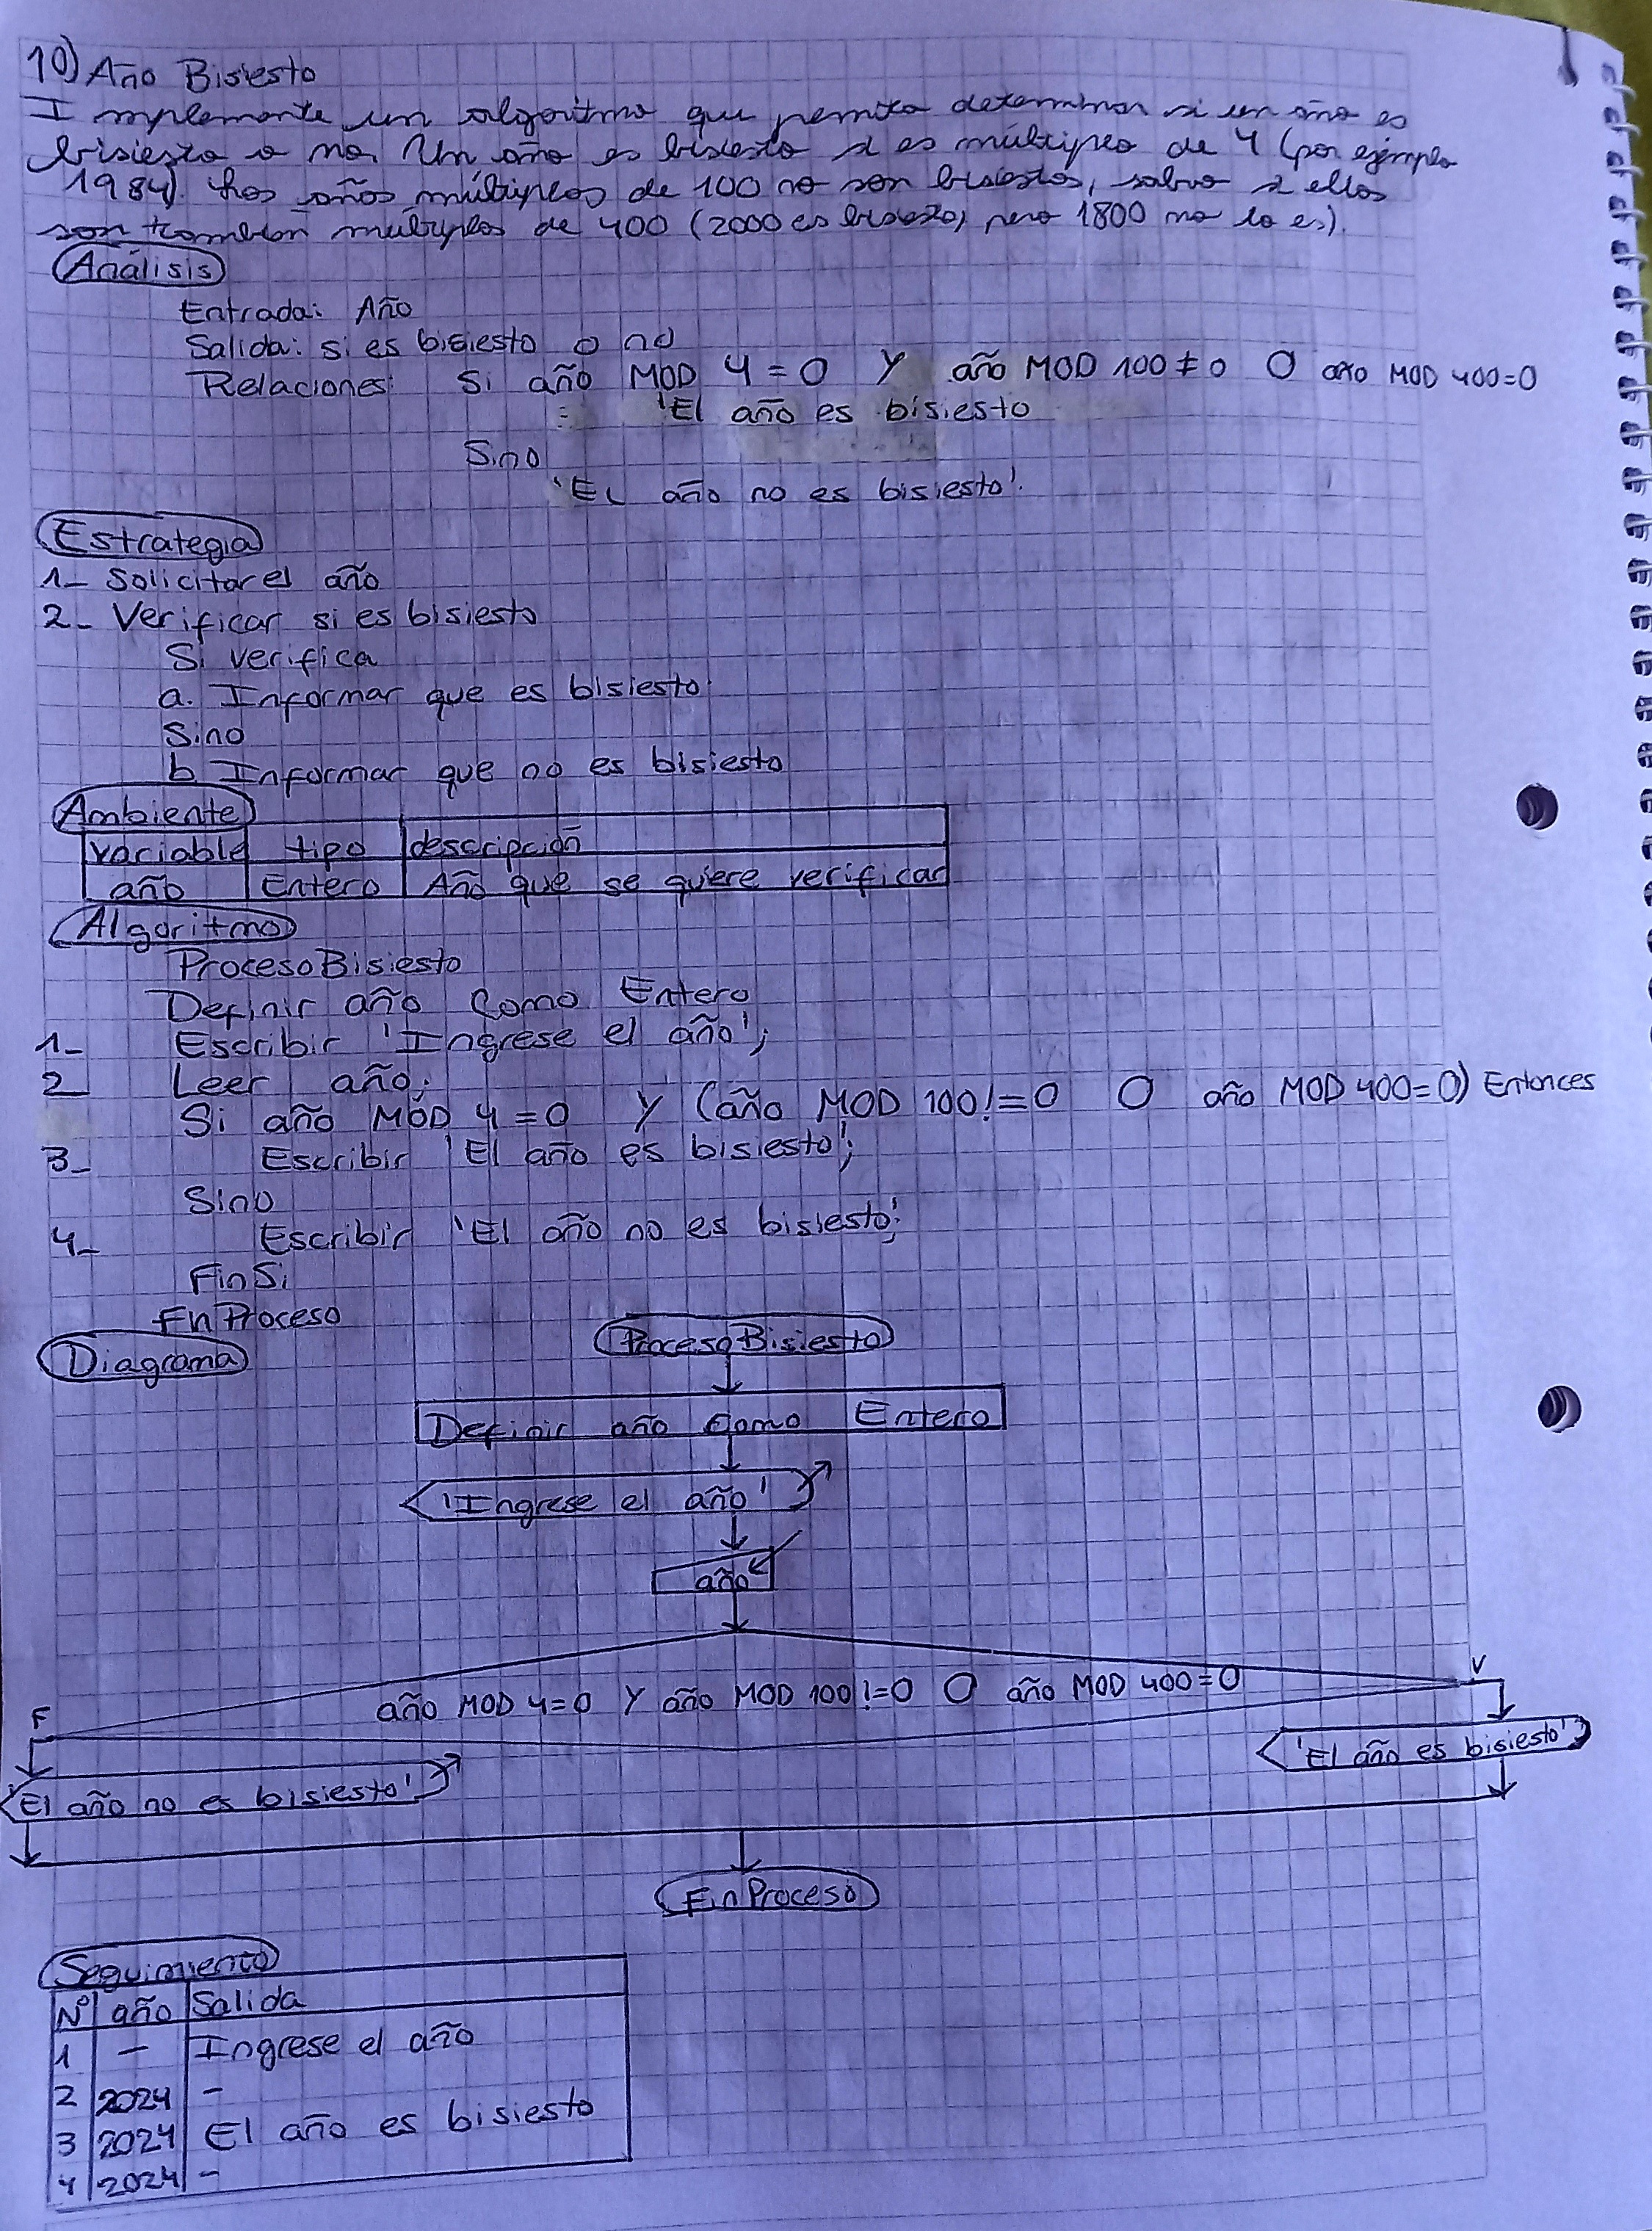 10) Año Bisiesto
Implemente un algoritmo que permita determinar si un año es
bisiesto o no. Un año es bisiesto si es múltiplo de 4 (por ejemplo
1984). Los años múltiplos de 100 no son bisiestos, salvo si ellos
son también múltiplos de 400 (2000 es bisiesto, pero 1800 no lo es).
Análisis
Entrada: Año
Salida: si es bisiesto o no
Relaciones: Si año MOD 4 = 0 Y año MOD 100 ≠ 0 O año MOD 400=0
'El año es bisiesto
Sino
'El año no es bisiesto'.
Estrategia
1- Solicitar el año
2- Verificar si es bisiesto
Si verifica
a. Informar que es bisiesto
Sino
b. Informar que no es bisiesto
Ambiente
variable tipo descripción
año Entero Año que se quiere verificar
Algoritmo
Proceso Bisiesto
Definir año Como Entero
1- Escribir 'Ingrese el año';
2 Leer año;
Si año MOD 4 = 0 Y (año MOD 100!=0 O año MOD 400=0) Entonces
3- Escribir 'El año es bisiesto';
Sino
4- Escribir 'El año no es bisiesto';
FinSi
FnProceso
Diagrama
Proceso Bisiesto
Definir año Como Entero
'Ingrese el año'
año
año MOD 4=0 Y año MOD 100!=0 O año MOD 400=0
F V
'El año es bisiesto'
'El año no es bisiesto'
FinProceso
Seguimiento
N° año Salida
1 - Ingrese el año
2 2024 -
3 2024 El año es bisiesto
4 2024 -